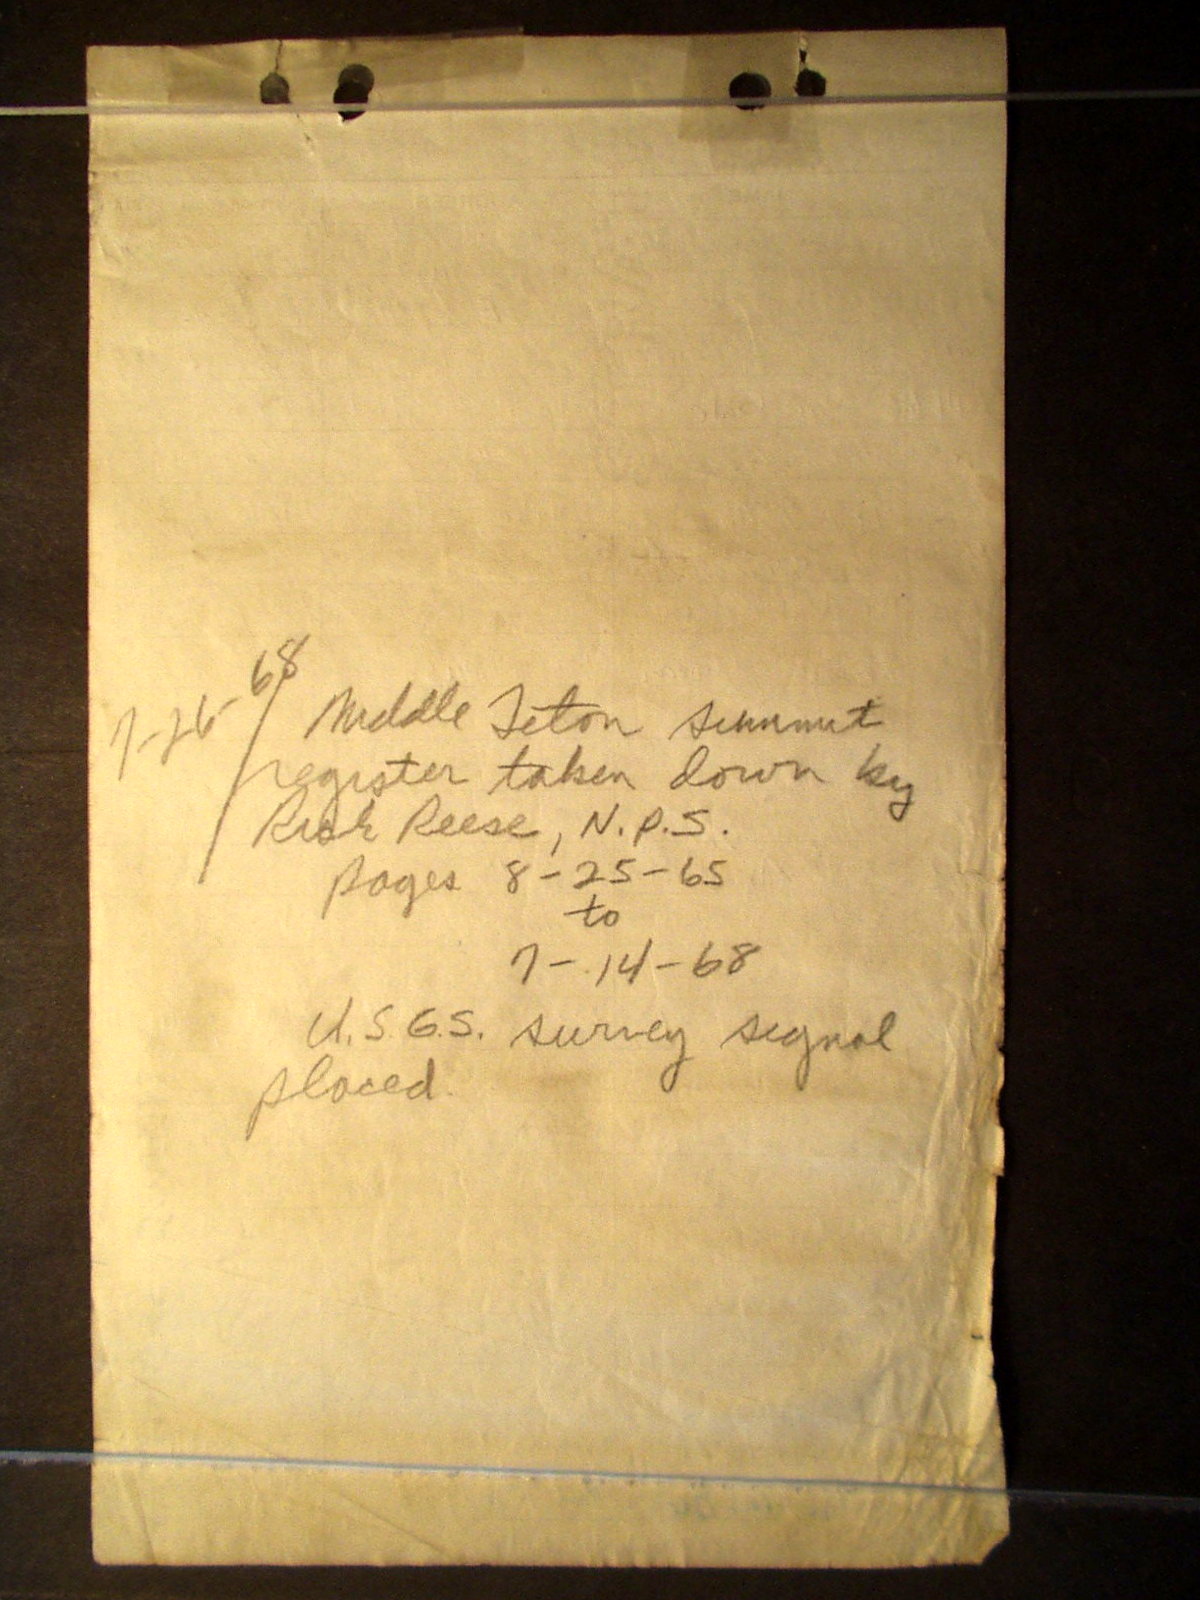 7-26-68
Middle Teton summit
register taken down by
Rick Reese, N.P.S.
pages 8-25-65
to
7-14-68
U.S.G.S. survey signal
placed.